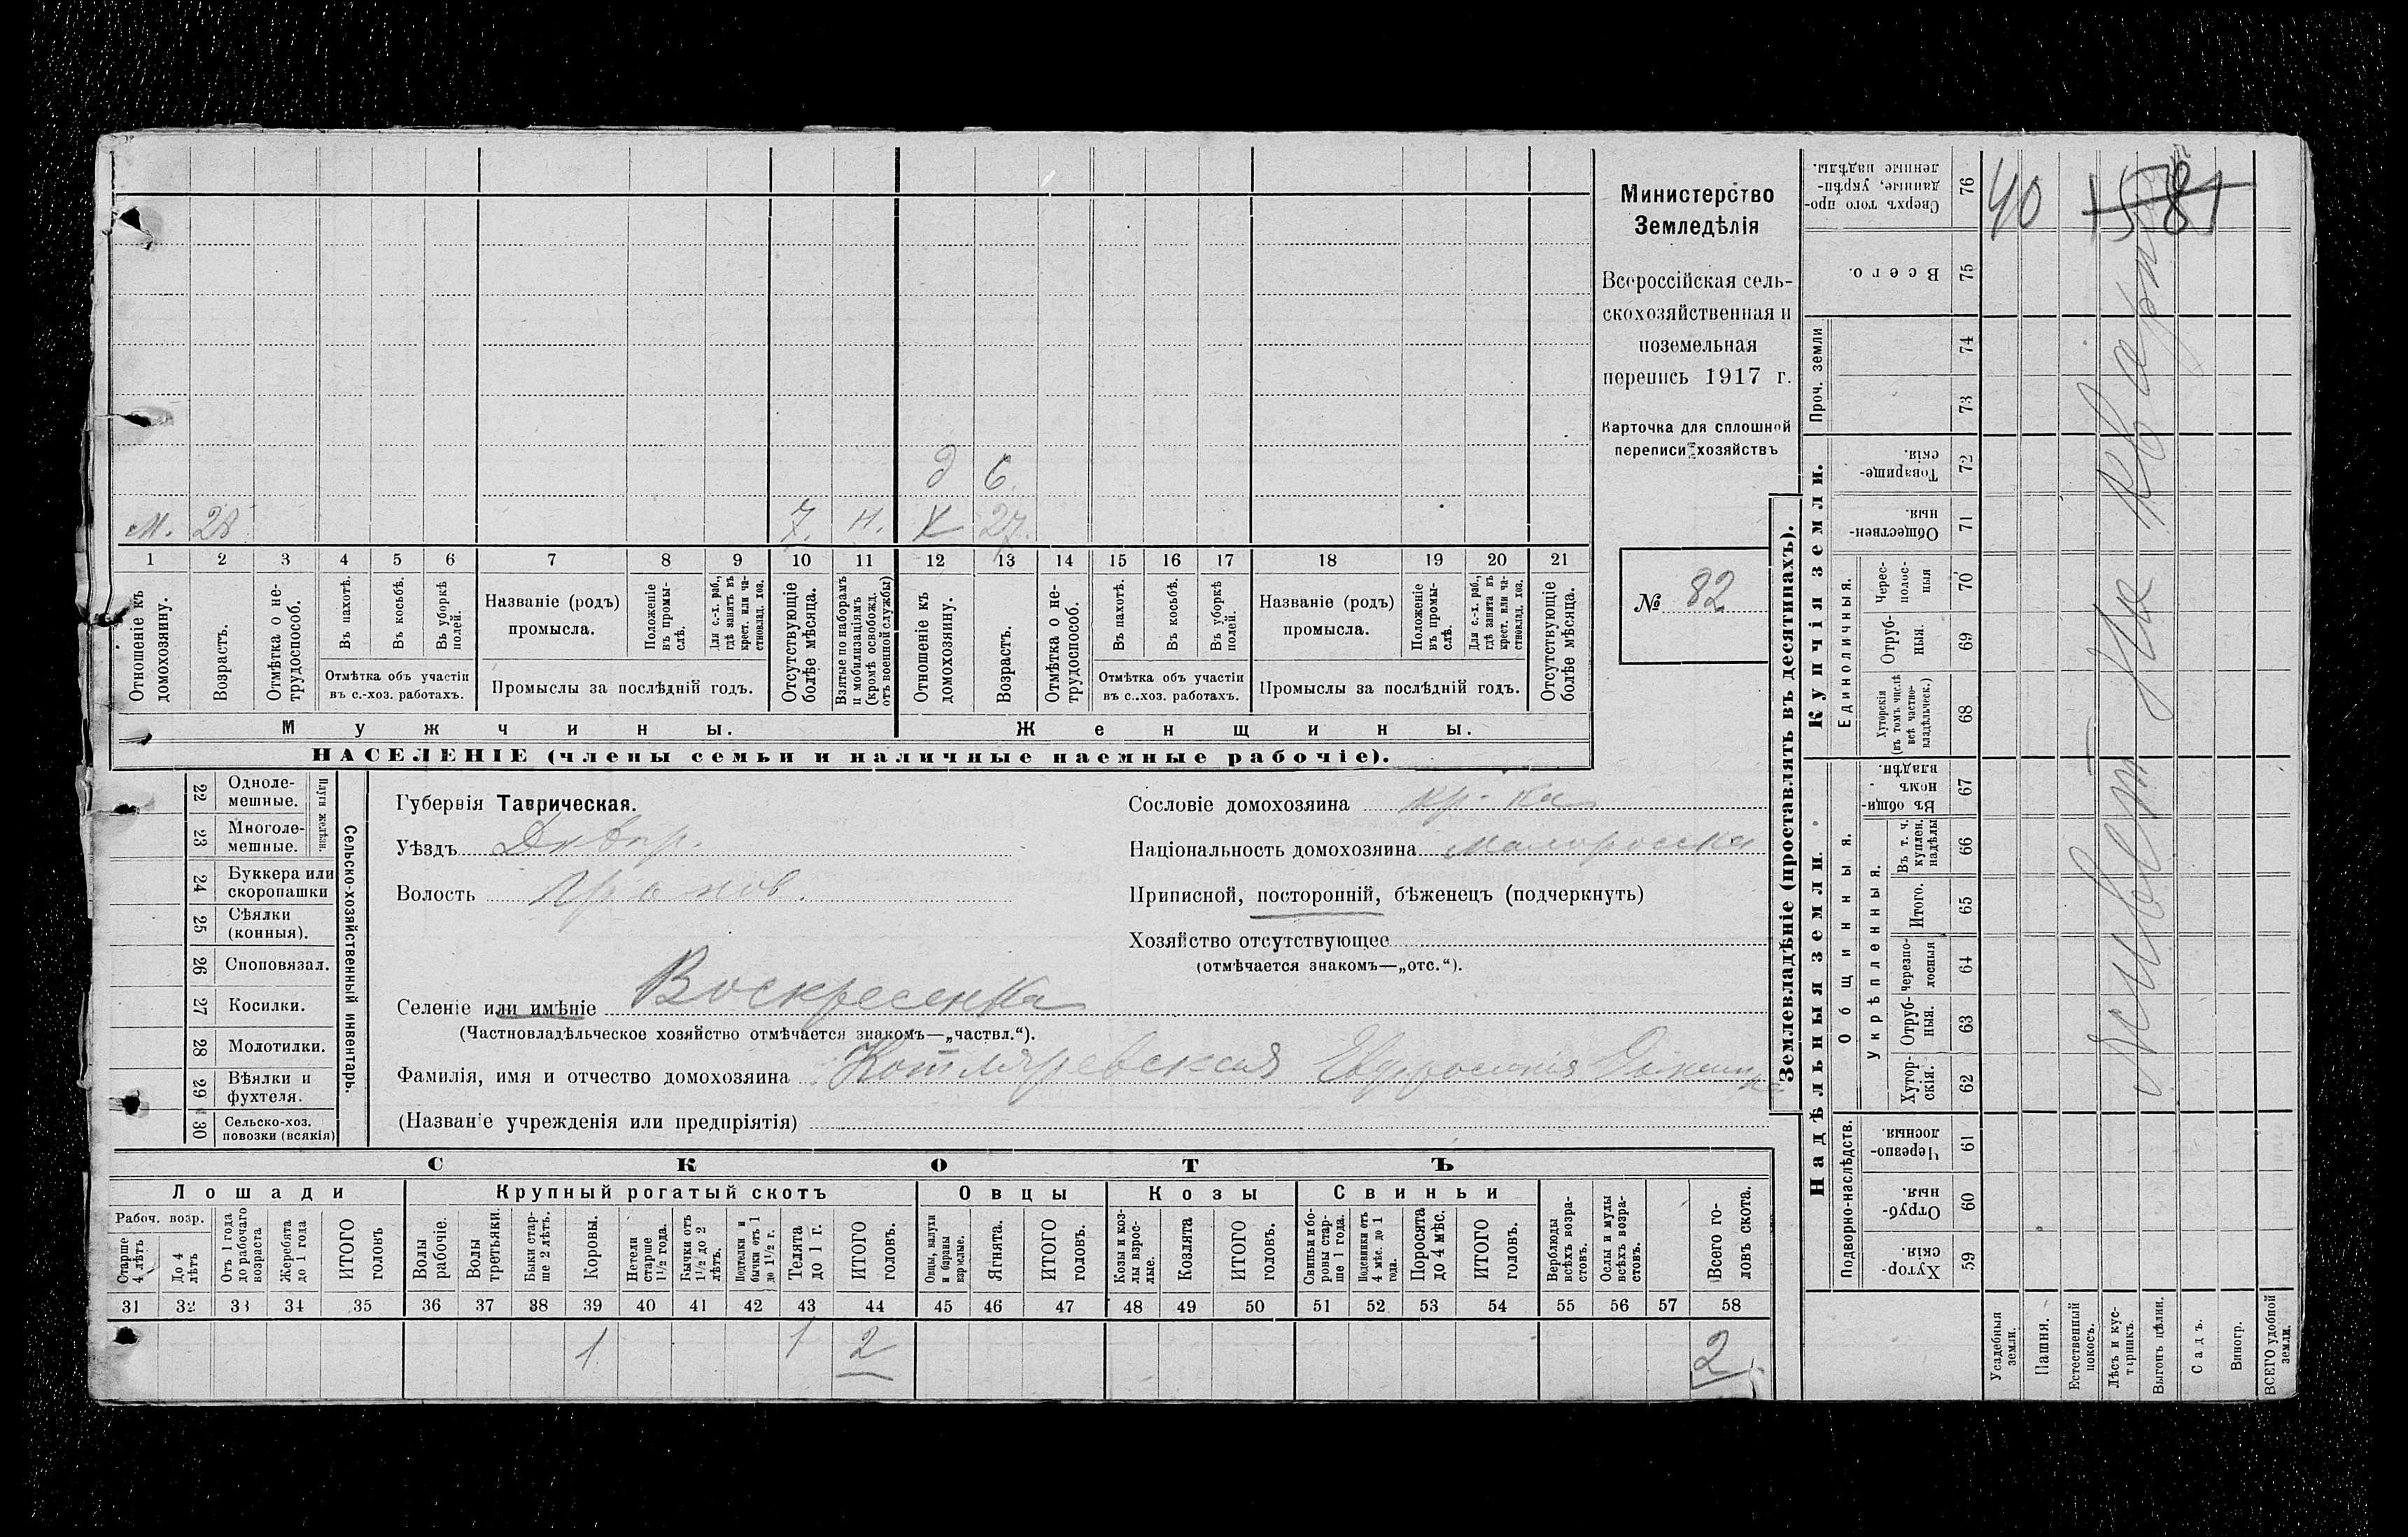 Министерство
Земледѣлія
Всероссійская сель-
скохозяйственная и
поземельная
перепись 1917 г.
Карточка для сплошной
переписи хозяйствъ
№ 82
д 6.
М. 28 7. Н. Х 27.
1 2 3 4 5 6 7 8 9 10 11 12 13 14 15 16 17 18 19 20 21
Отношеніе къ домохозяину.
Возрастъ.
Отмѣтка о не-трудоспособ.
Въ пахотѣ.
Въ косьбѣ.
Въ уборкѣ полей.
Отмѣтка объ участіи
въ с.-хоз. работахъ.
Названіе (родъ)
промысла.
Положеніе въ промы-слѣ.
Для с.-х. раб., гдѣ занятъ въ крест. или ча-стновлад. хоз.
Промыслы за послѣдній годъ.
Отсутствующіе болѣе мѣсяца.
Взятые по наборамъ и мобилизаціямъ (кромѣ освобожд. отъ военной службы)
Отношеніе къ домохозяину.
Возрастъ.
Отмѣтка о не-трудоспособ.
Въ пахотѣ.
Въ косьбѣ.
Въ уборкѣ полей.
Отмѣтка объ участіи
въ с.-хоз. работахъ.
Названіе (родъ)
промысла.
Положеніе въ промы-слѣ.
Для с.-х. раб., гдѣ занята въ крест. или ча-стновлад. хоз.
Промыслы за послѣдній годъ.
Отсутствующіе болѣе мѣсяца.
Мужчины. Женщины.
НАСЕЛЕНІЕ (члены семьи и наличные наемные рабочіе).
Сельско-хозяйственный инвентарь.
Плуги желѣзн.
22 Одноле-мешные.
23 Многоле-мешные.
24 Буккера или скоропашки
25 Сѣялки (конныя).
26 Сноповязал.
27 Косилки.
28 Молотилки.
29 Вѣялки и фухтеля.
30 Сельско-хоз. повозки (всякія)
Губернія Таврическая.
Уѣздъ Днѣпр.
Волость
Селеніе или имѣніе Воскресенка
(Частновладѣльческое хозяйство отмѣчается знакомъ—„частвл.“).
Фамилія, имя и отчество домохозяина Котляревская Евфросинія
(Названіе учрежденія или предпріятія)
Сословіе домохозяина кр-ка
Національность домохозяина малоросска
Приписной, посторонній, бѣженецъ (подчеркнуть)
Хозяйство отсутствующее
(отмѣчается знакомъ—„отс.“).
СКОТЪ
Лошади Крупный рогатый скотъ Овцы Козы Свиньи
Рабоч. возр.
Старше 4 лѣтъ
До 4 лѣтъ
Отъ 1 года до рабочаго возраста
Жеребята до 1 года
ИТОГО головъ
Волы рабочіе.
Волы третьяки.
Быки стар-ше 2 лѣтъ.
Коровы.
Нетели старше 1½ года.
Бычки отъ 1½ до 2 лѣтъ.
Подтелки и бычки отъ 1 до 1½ г.
Телята до 1 г.
ИТОГО головъ.
Овцы, валухи и бараны взрослые.
Ягнята.
ИТОГО головъ.
Козы и коз-лы взрос-лые.
Козлята
ИТОГО головъ.
Свиньи и бо-ровы стар-ше 1 года.
Подсвинки отъ 4 мѣс. до 1 года.
Поросята до 4 мѣс.
ИТОГО головъ.
Верблюды всѣхъ возра-стовъ.
Ослы и мулы всѣхъ возра-стовъ.
Всего го-ловъ скота.
31 32 33 34 35 36 37 38 39 40 41 42 43 44 45 46 47 48 49 50 51 52 53 54 55 56 57 58
1 1 2 2
Землевладѣніе (проставлять въ десятинахъ).
Надѣльныя земли. Купчія земли.
Подворно-наслѣдств.
Общинныя.
Укрѣпленныя.
Единоличныя.
Проч. земли
Хутор-скія. 59
Отруб-ныя. 60
Черезпо-лосныя. 61
Хутор-скія. 62
Отруб-ныя. 63
Черезпо-лосныя 64
Итого. 65
Въ т. ч. куплен. надѣлы 66
Въ общи-номъ владѣн. 67
Хуторскія (въ томъ числѣ всѣ частно-владѣльческ.) 68
Отруб-ныя. 69
Черес-полос-ныя 70
Обществен-ныя. 71
Товарище-скія. 72
73
74
Всего. 75
Сверхъ того про-данные, укрѣп-ленные надѣлы. 76
Усадебныя земли.
Пашня.
Естественный покосъ.
Лѣсъ и кус-тарникъ.
Выгонъ цѣлин.
Садъ.
Виногр.
ВСЕГО удобной земли.
40
1581
живетъ на квартирѣ